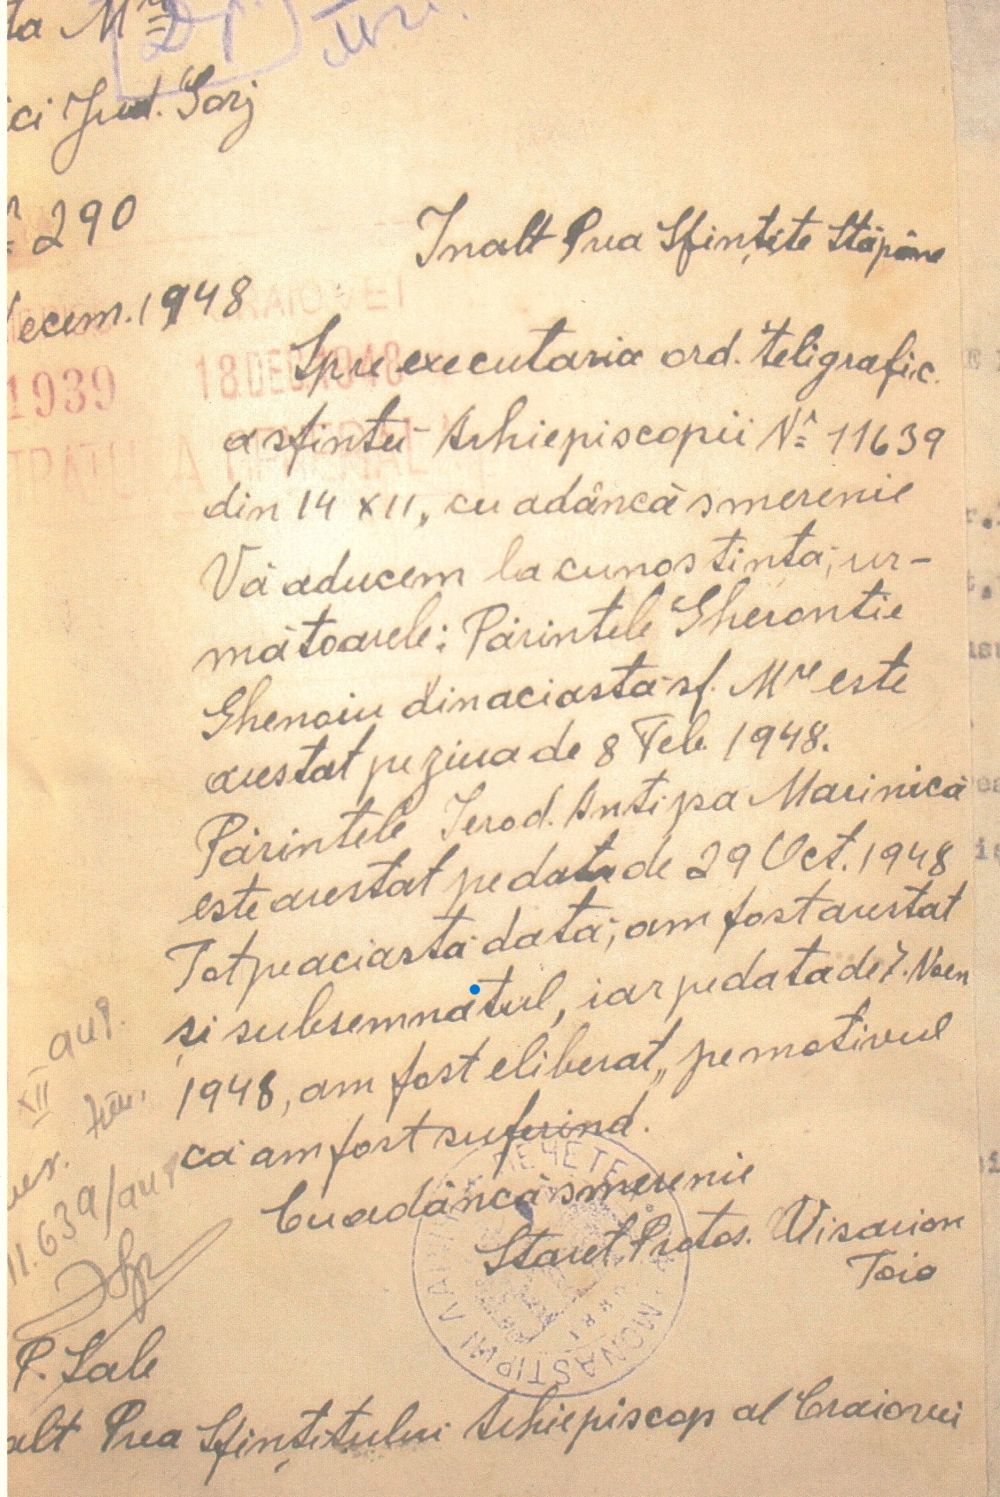 ta Mre
ici Jud. Gorj
290
Decem. 1948
CRAIOVEI
1939 18 DEC 1948
Inalt Prea Sfințite Stăpâne
Spre executaria ord. teligrafic
a sfintei Arhiepiscopii No 11639
din 14 XII, cu adâncă smerenie
Vă aducem la cunostința, ur-
mătoarele: Părintele Gherontie
Ghenoiu din aciasta sf. Mre este
arestat pe ziua de 8 Feb. 1948.
Părintele Ierod. Antipa Marinică
este arestat pe data de 29 Oct. 1948
Tot pe aciastă dată, am fost arestat
și subsemnatul, iar pe data de 7. Noen
1948, am fost eliberat,, pe motivul
că am fost suferind.
Cu adâncă smerenie
Staret, Protos. Visarion
Toia
XII aug.
11.639/aug
P. Sale
alt Prea Sfințitului Arhiepiscop al Craiovei